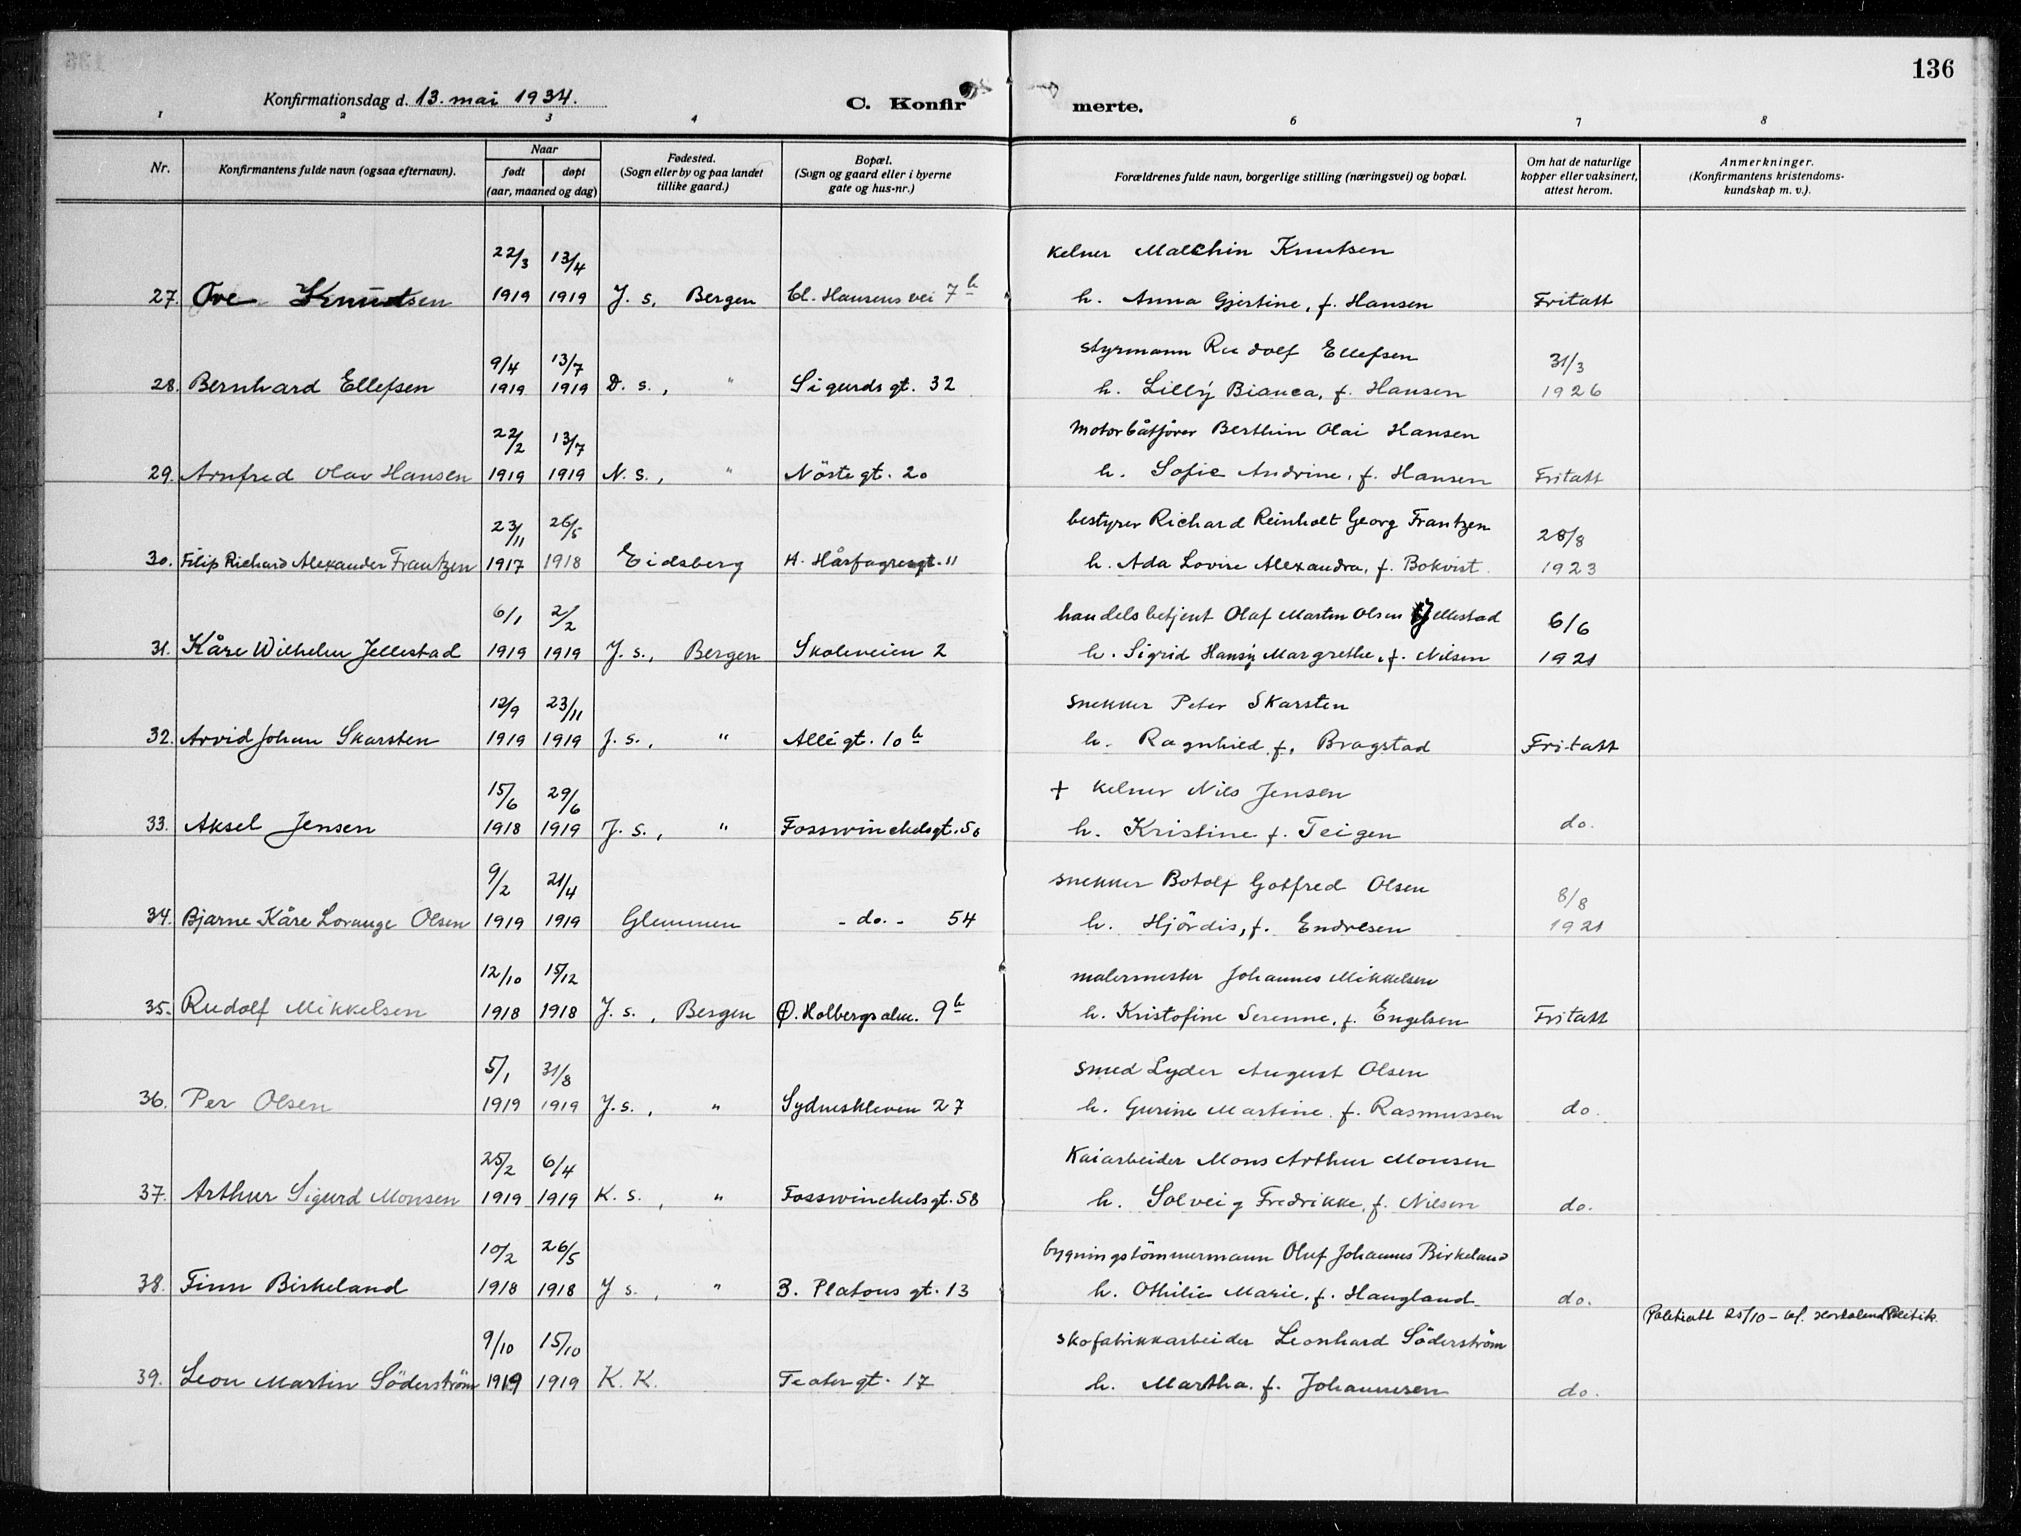 136
Konfirmationsdag d. 13. mai 1934.
C. Konfirmerte.
1 2 3 4 6 7 8
Nr. Konfirmantens fulde navn (ogsaa efternavn). Naar født døpt (aar, maaned og dag) Fødested. (Sogn eller by og paa landet tillike gaard.) Bopæl. (Sogn og gaard eller i byerne gate og hus-nr.) Forældrenes fulde navn, borgerlige stilling (næringsvei) og bopæl. Om hat de naturlige kopper eller vaksinert, attest herom. Anmerkninger. (Konfirmantens kristendomskundskap m. v.).
22/3 13/4 kelner Malchin Knutsen
27. Ove Knudsen 1919 1919 J. s., Bergen Cl. Hansens vei 7b h. Anna Gjertine, f. Hansen Fritatt
9/4 13/7 styrmann Rudolf Ellefsen 31/3
28. Bernhard Ellefsen 1919 1919 D. s., " Sigurds gt. 32 h. Lilly Bianca, f. Hansen 1926
22/2 13/7 Motorbåtfører Berthin Olai Hansen
29. Arnfred Olav Hansen 1919 1919 N. s., " Nöste gt. 20 h. Sofie Andrine, f. Hansen Fritatt
23/11 26/5 bestyrer Richard Reinholt Georg Frantzen 28/8
30. Filip Richard Alexander Frantzen 1917 1918 Eidsberg H. Hårfagresgt. 11 h. Ada Lovise Alexandra, f. Bokvist 1923
6/1 2/2 handelsbetjent Olaf Martin Olsen Jellestad 6/6
31. Kåre Wilhelm Jellestad 1919 1919 J. s., Bergen Skoleveien 2 h. Sigrid Hansy Margrethe, f. Nilsen 1921
12/9 23/11 snekker Peter Skarsten
32. Arvid Johan Skarsten 1919 1919 J. s., " Allégt. 10b h. Ragnhild f. Bragstad Fritatt
15/6 29/6 + kelner Nils Jensen
33. Aksel Jensen 1918 1919 J. s., " Fosswinckelsgt. 50 h. Kristine f. Teigen do.
9/2 21/4 snekker Botolf Gotfred Olsen 8/8
34. Bjarne Kåre Lorange Olsen 1919 1919 Glemmen - do. - 54 h. Hjördis, f. Endresen 1921
12/10 15/12 malermester Johannes Mikkelsen
35. Rudolf Mikkelsen 1918 1918 J. s., Bergen Ø. Holbergsalm. 9b h. Kristofine Serenne, f. Engelsen Fritatt
5/1 31/8 smed Lyder August Olsen
36. Per Olsen 1919 1919 J. s., " Sydneskleven 27 h. Gurine Martine f. Rasmussen do.
25/2 6/4 Kaiarbeider Mons Arthur Monsen
37. Arthur Sigurd Monsen 1919 1919 K. s. " Fosswinckelsgt. 58 h. Solveig Fredrikke, f. Nilsen do.
10/2 26/5 bygningstömmermann Oluf Johannes Birkeland
38. Finn Birkeland 1918 1918 J s., " B. Platous gt. 13 h. Othilie Marie, f. Haugland do.
9/10 15/10 skofabrikkarbeider Leonhard Söderström
39. Leon Martin Söderström 1919 1919 K. K. Teatergt. 17 h. Martha f. Johannesen do.